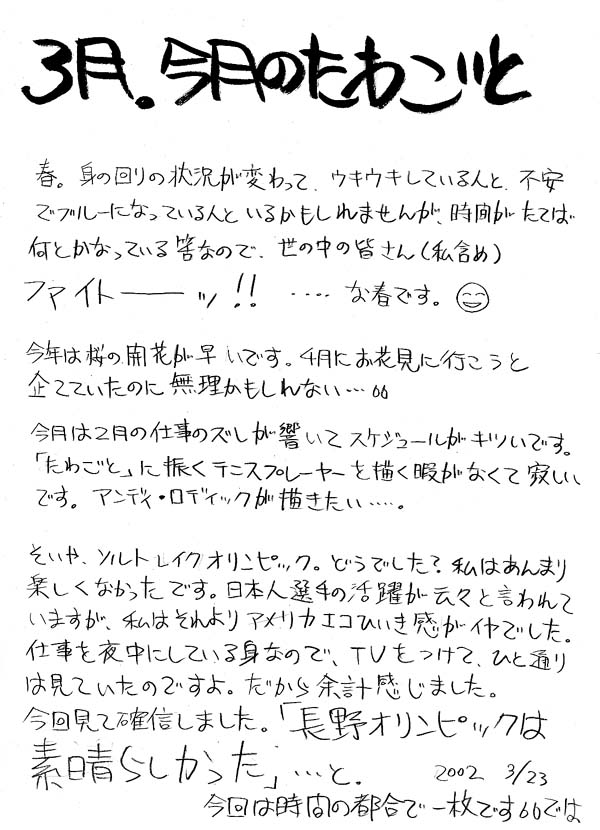 3月。今月のたわごと
春。身の回りの状況が変わって、ウキウキしている人と、不安
でブルーになっている人といるかもしれませんが、時間がたてば
何とかなっている筈なので、世の中の皆さん(私含め)
ファイトーーッ!! ‥‥な春です。
今年は桜の開花が早いです。4月にお花見に行こうと
企てていたのに無理かもしれない…
今月は2月の仕事のズレが響いてスケジュールがキツいです。
「たわごと」に振くテニスプレーヤーを描く暇がなくて寂しい
です。アンディ・ロディックが描きたい‥‥。
そいや、ソルトレイクオリンピック。どうでした?私はあんまり
楽しくなかったです。日本人選手の活躍が云々と言われて
いますが、私はそれよりアメリカエコひいき感がイヤでした。
仕事を夜中にしている身なので、TVをつけて、ひと通り
は見ていたのですよ。だから余計感じました。
今回見て確信しました。「長野オリンピックは
素晴らしかった」…と。 2002 3/23
今回は時間の都合で一枚ですでは